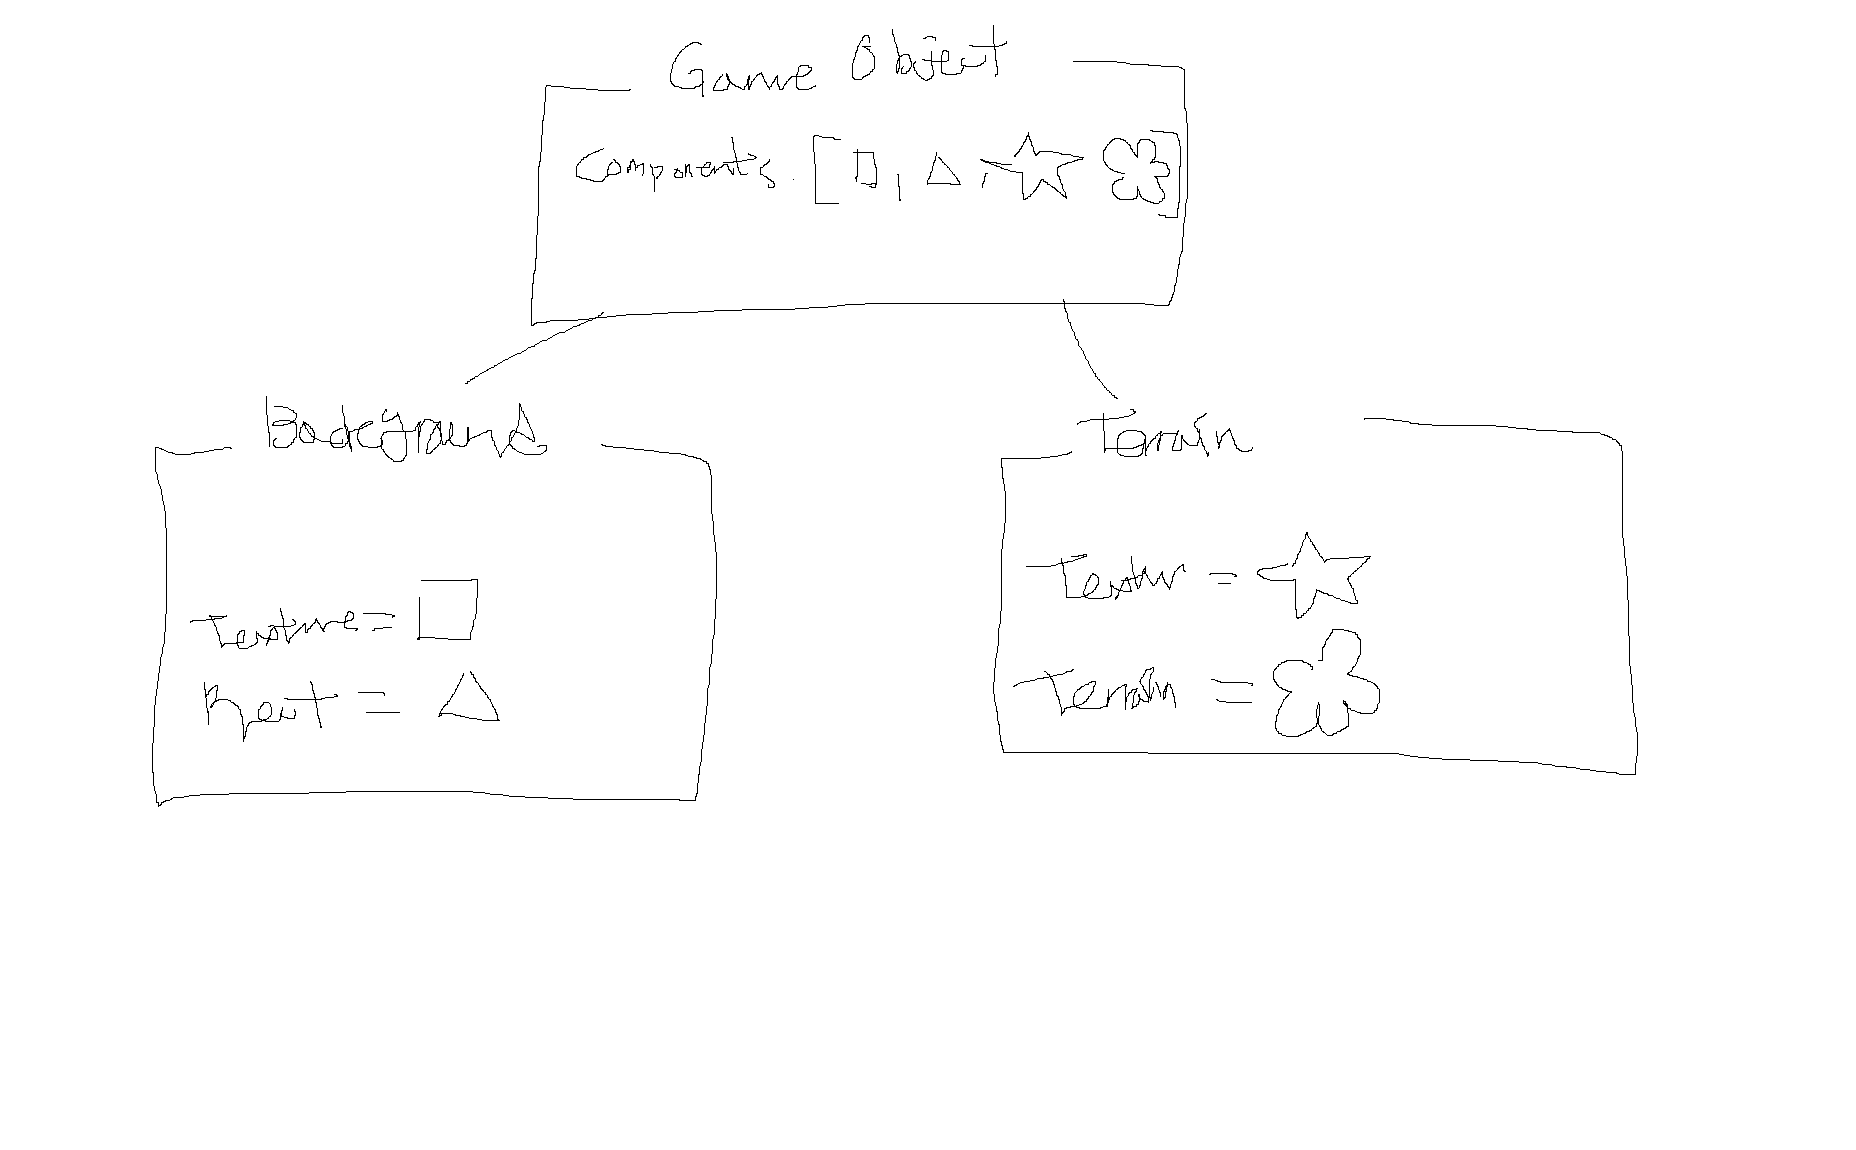 Game Object
Components
Background
Terrain
Texture =
=
Textur =
Terrain =